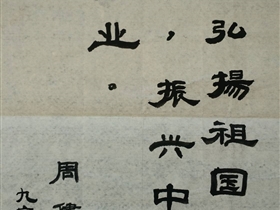 弘揚祖国
，振兴中
业。
周
九